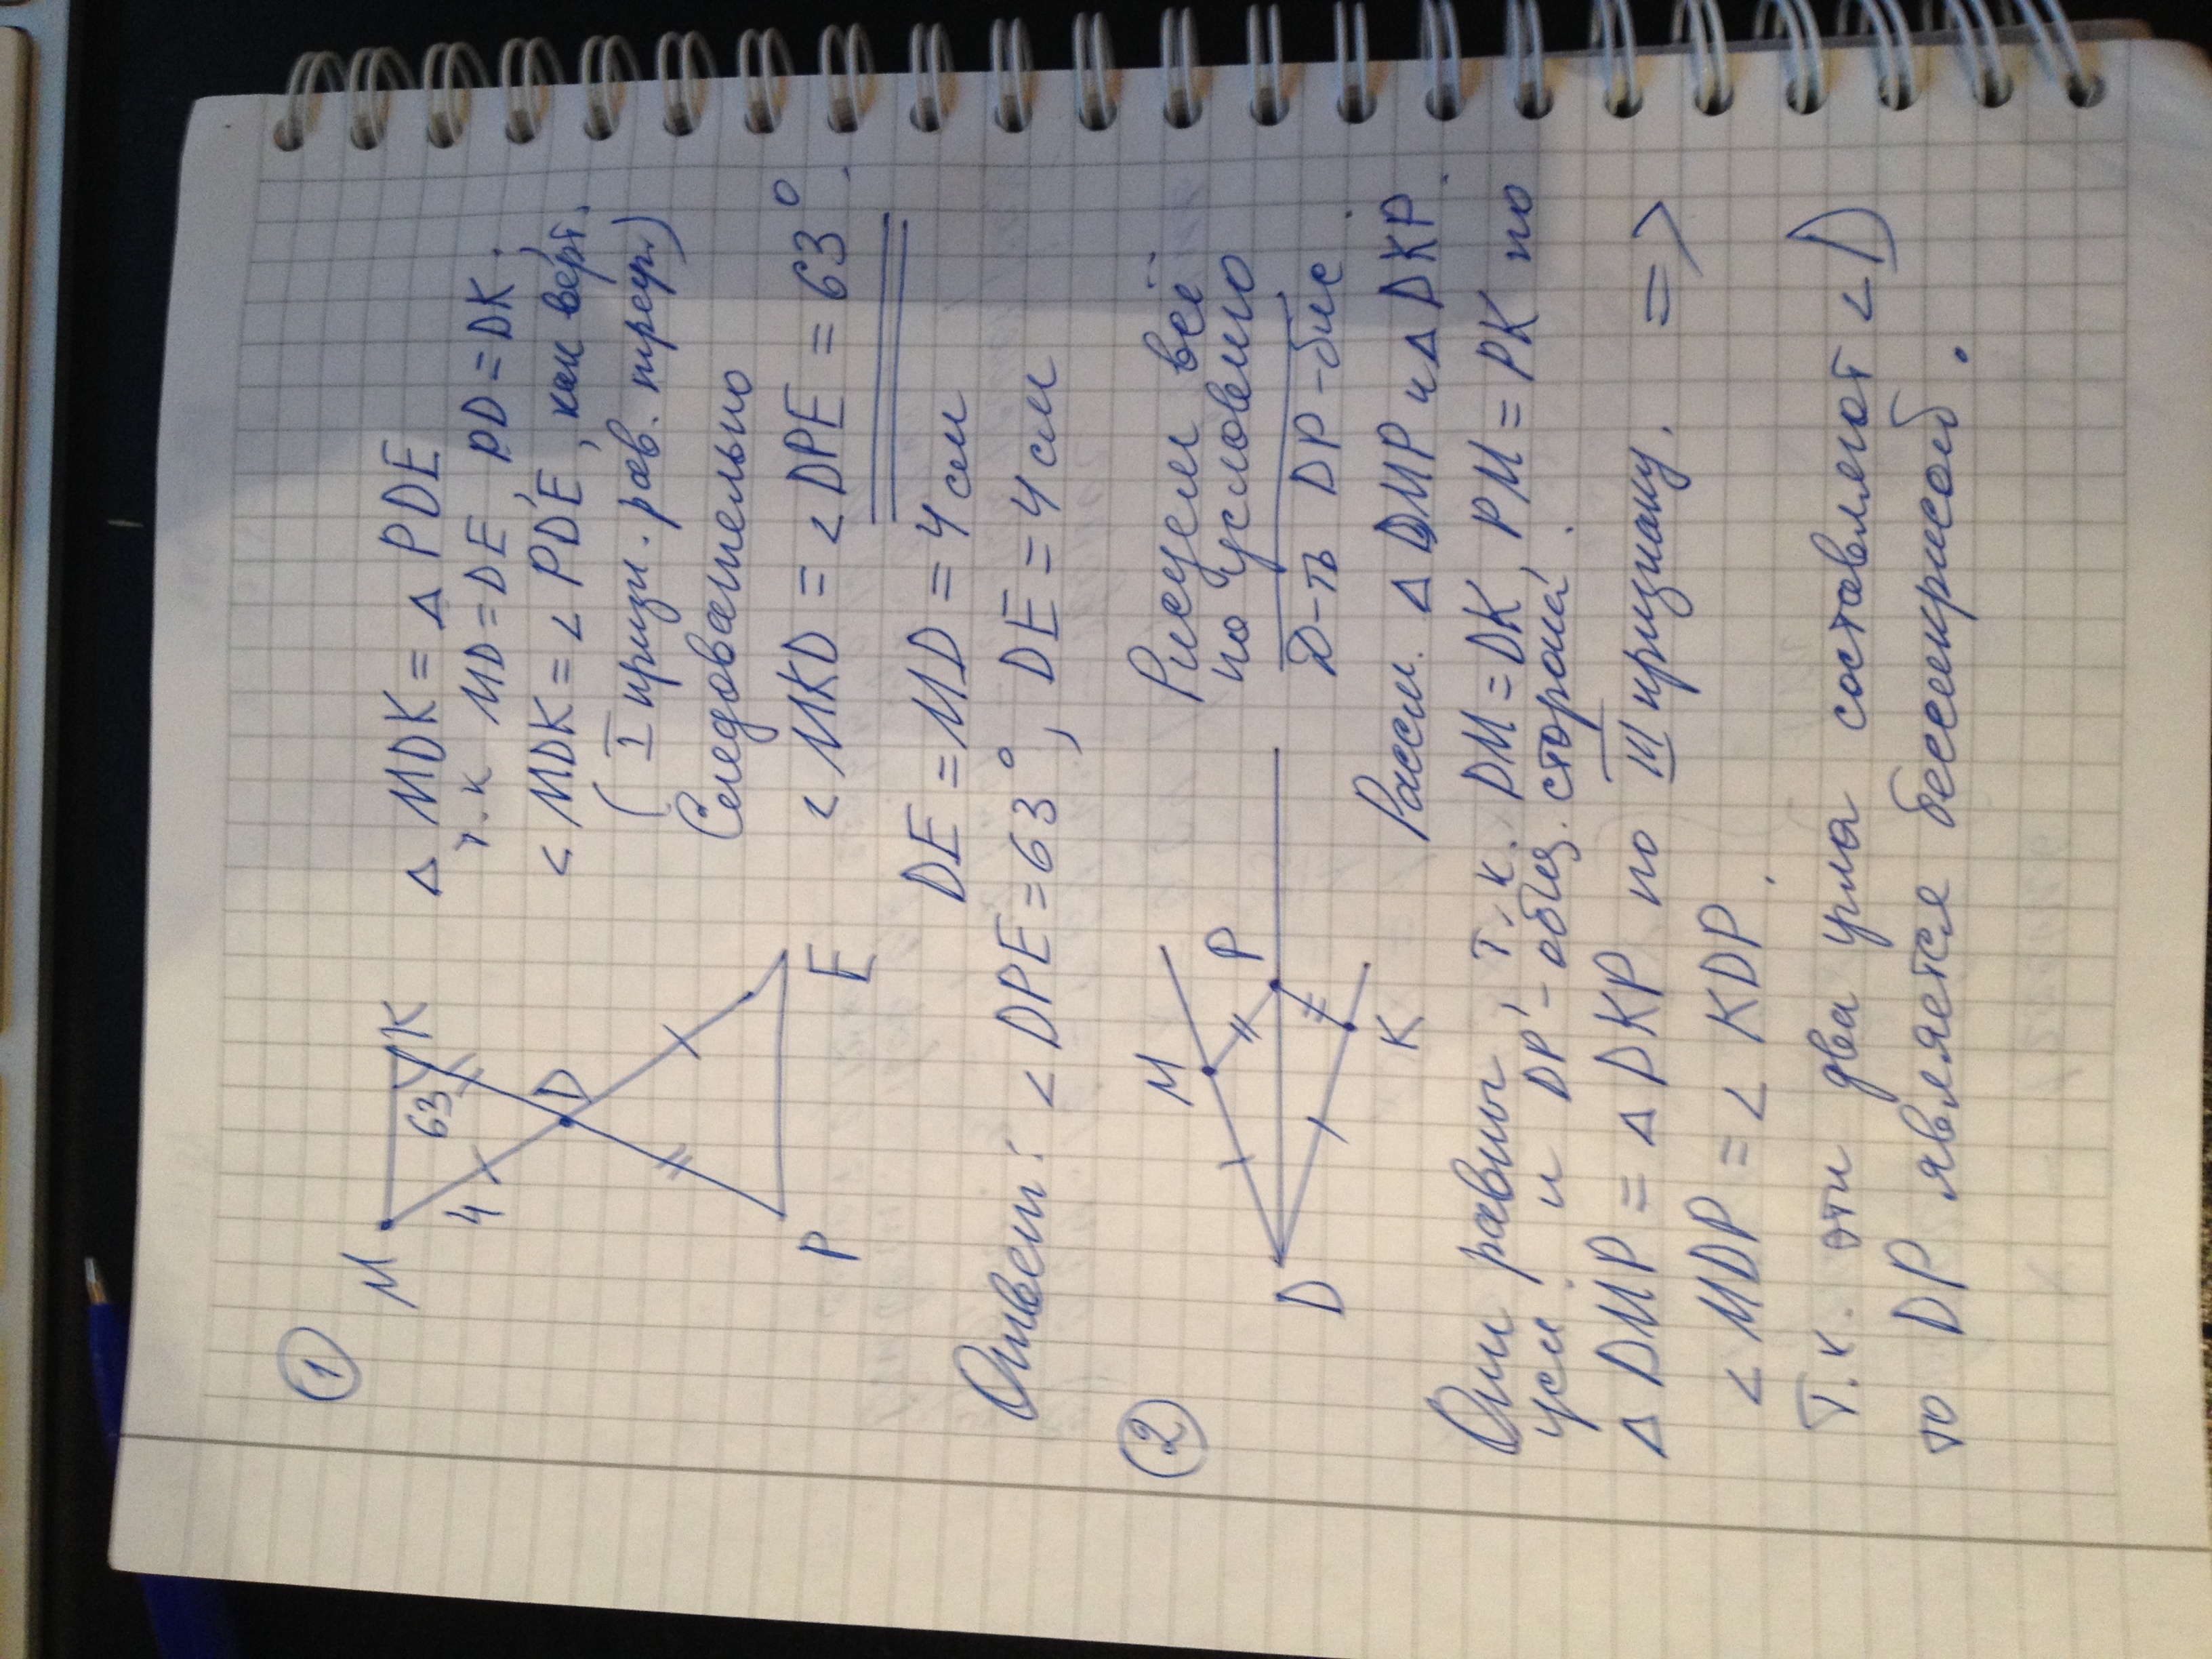 1
M
K
63
4
D
P
E
Δ MDK = Δ PDE
т.к MD = DE, PD = DK,
< MDK = < PDE, как верт.
(I призн. рав. треуг.)
Следовательно
< MKD = < DPE = 63°.
DE = MD = 4 см
Ответ: < DPE = 63°, DE = 4 см
2
M
P
D
K
Рисуем всё
по условию
Д-ть DP - бис.
Рассм. Δ DMP и Δ DKP.
Они равны т.к. DM = DK, PM = PK по
усл. и DP - общ. сторона.
Δ DMP = Δ DKP по III признаку. =>
< MDP = < KDP.
Т.к. эти два угла составляют < D
то DP является биссектрисой.